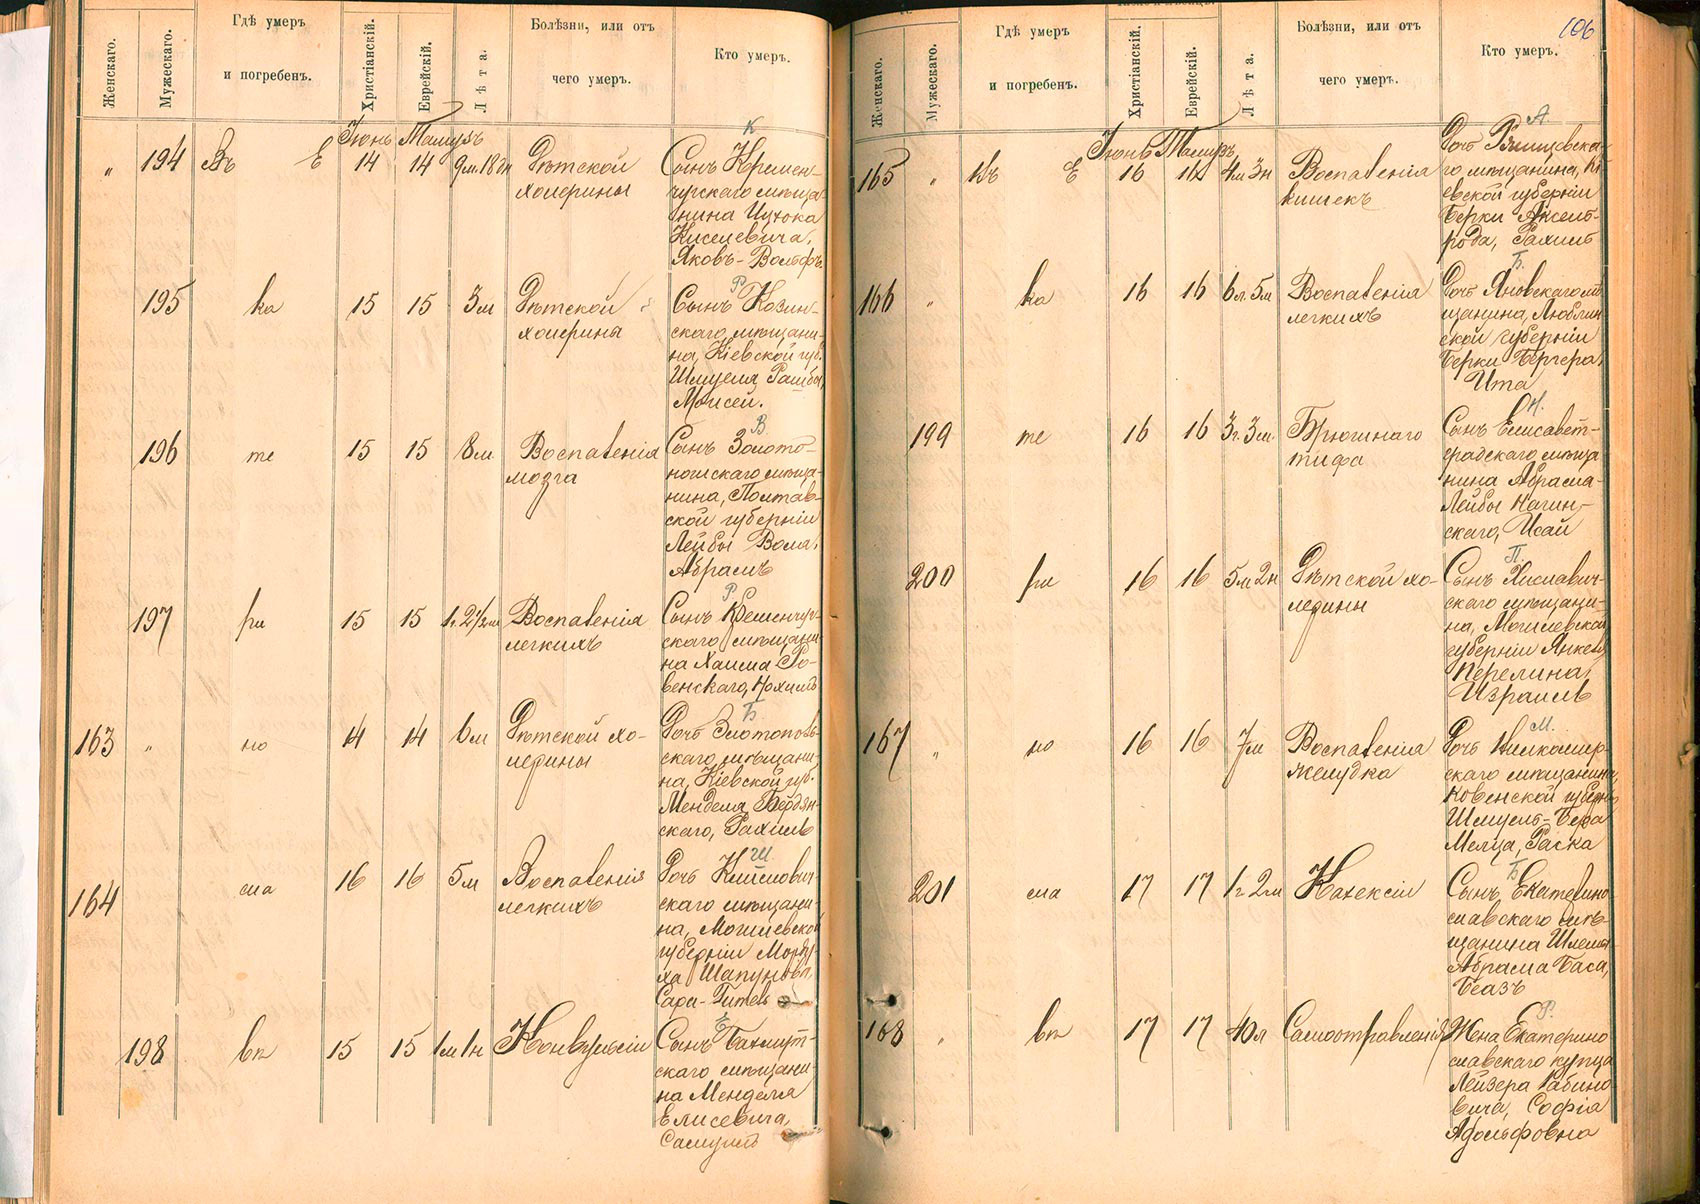 Женскаго.
Мужескаго.
Гдѣ умеръ
и погребенъ.
Христіанскій.
Еврейскій.
Лѣта.
Болѣзни, или отъ
чего умеръ.
Кто умеръ.
Іюнь Тамузъ
К
„ 194 Въ Е 14 14 9м.18дн
Дѣтской
холерины
Сынъ Кремен-
чугскаго мѣща-
нина Ицхока
Киселевича,
Яковъ-Вольфъ.
Р
195 ка 15 15 3м
Дѣтской
холерины
Сынъ Козин-
скаго мѣщани-
на, Кіевской губ.
Шмуеля
Моисей.
В
196 те 15 15 8м
Воспаленія
мозга
Сынъ Золото-
ношскаго мѣща-
нина, Полтав-
ской губерніи
Лейбы
Абрамъ
Р
197 ри 15 15 1г.2½м
Воспаленія
легкихъ
Сынъ Кременчуг-
скаго мѣщани-
на Хаима Ро-
венскаго, Нохимъ
Б
163 „ но 14 14 6м
Дѣтской хо-
лерины
Дочь Златополь-
скаго мѣщани-
на, Кіевской губ.
Менделя Бердян-
скаго, Рахиль
Ш
164 сла 16 16 5м
Воспаленія
легкихъ
Дочь Климович-
скаго мѣщани-
на, Могилевской
губерніи Морду-
ха Шапунова,
Сара-Гитель
Е
198 вл 15 15 1м1н
Конвульсіи
Сынъ Бахмут-
скаго мѣщани-
на Менделя
Елисевича,
Самуилъ
106
Женскаго.
Мужескаго.
Гдѣ умеръ
и погребенъ.
Христіанскій.
Еврейскій.
Лѣта.
Болѣзни, или отъ
чего умеръ.
Кто умеръ.
Іюнь Тамузъ
А
165 „ Въ Е 16 16 4м 3н
Воспаленія
кишекъ
Дочь
го мѣщанина, Кі
евской губерніи
Берки Аксель-
рода, Рахиль
Б.
166 „ ка 16 16 6л.5м
Воспаленія
легкихъ
Дочь Яновскаго мѣ
щанина, Люблин
ской губерніи
Берки Бергера,
Ита
Н.
199 те 16 16 3г.3м.
Брюшнаго
тифа
Сынъ Елисавет-
градскаго мѣща
нина Абрама-
Лейбы Нагин-
скаго, Исай
П.
200 ри 16 16 5м 2н
Дѣтской хо-
лерины
Сынъ Хиславич-
скаго мѣщани-
на, Могилевской
губерніи Янкеля
Перелина,
Израиль
М.
167 „ но 16 16 7м
Воспаленія
желудка
Дочь Вилкомир-
скаго мѣщанина,
Ковенской губерніи
Шмуель-Бера
Мелца, Раска
Б
201 сла 17 17 1г 2м
Кахексіи
Сынъ Екатерино-
славскаго мѣ-
щанина Шлемы-
Абрама Баса,
Беазъ
Р.
168 „ вл 17 17 40л
Самоотравленія
Жена Екатерино
славскаго купца
Лейзера Рабино-
вича, Софія
Адольфовна